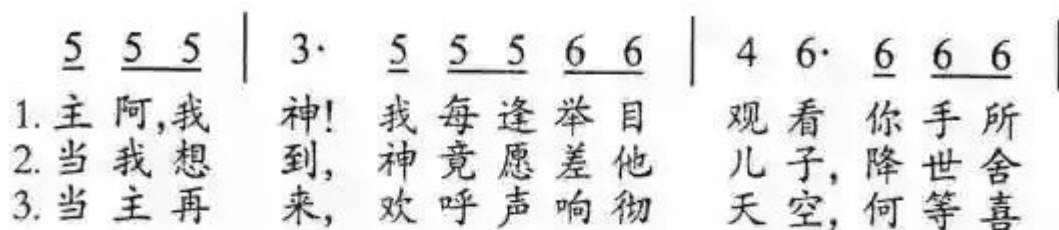 5 5 5 | 3· 5 5 5 6 6 | 4 6· 6 6 6 |
1. 主 阿,我 神! 我 每 逢 举 目 观 看 你 手 所
2. 当 我 想 到, 神 竟 愿 差 他 儿 子, 降 世 舍
3. 当 主 再 来, 欢 呼 声 响 彻 天 空, 何 等 喜